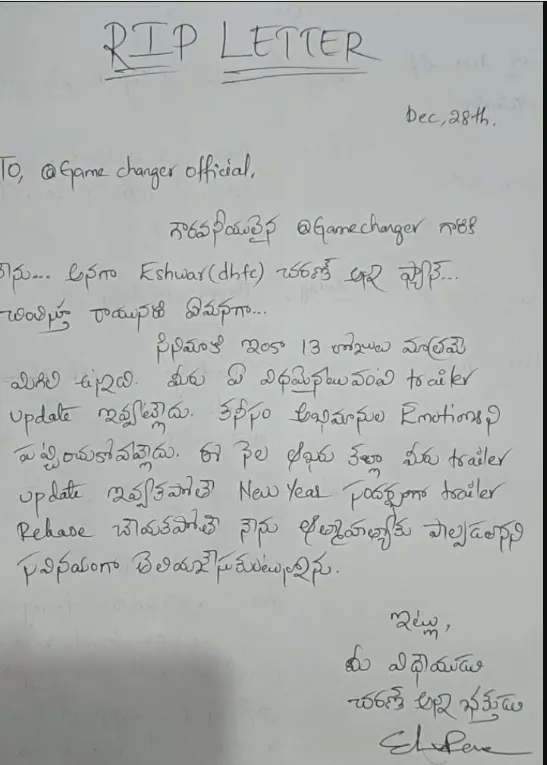 RIP LETTER
Dec, 28th.
TO, @Game changer official,
గౌరవనీయులైన @Gamechanger గారికి
నేను... అనగా Eshwar(dhfc) చరణ్ అన్న ఫ్యాన్...
చింతిస్తూ రాయునది ఏమనగా...
సినిమాకి ఇంకా 13 రోజులు మాత్రమే
మిగిలి ఉన్నది. మీరు ఏ విధమైనటువంటి trailer
update ఇవ్వట్లేదు. కనీసం అభిమానుల Emotionsని
పట్టించుకోవట్లేదు. ఈ నెల ఆఖరు కల్లా మీరు trailer
update ఇవ్వకపోతే New Year సందర్భంగా trailer
Release చేయకపోతే నేను ఆత్మహత్యకు పాల్పడతానని
సవినయంగా తెలియజేసుకుంటున్నాను.
ఇట్లు,
మీ విధేయుడు
చరణ్ అన్న భక్తుడు